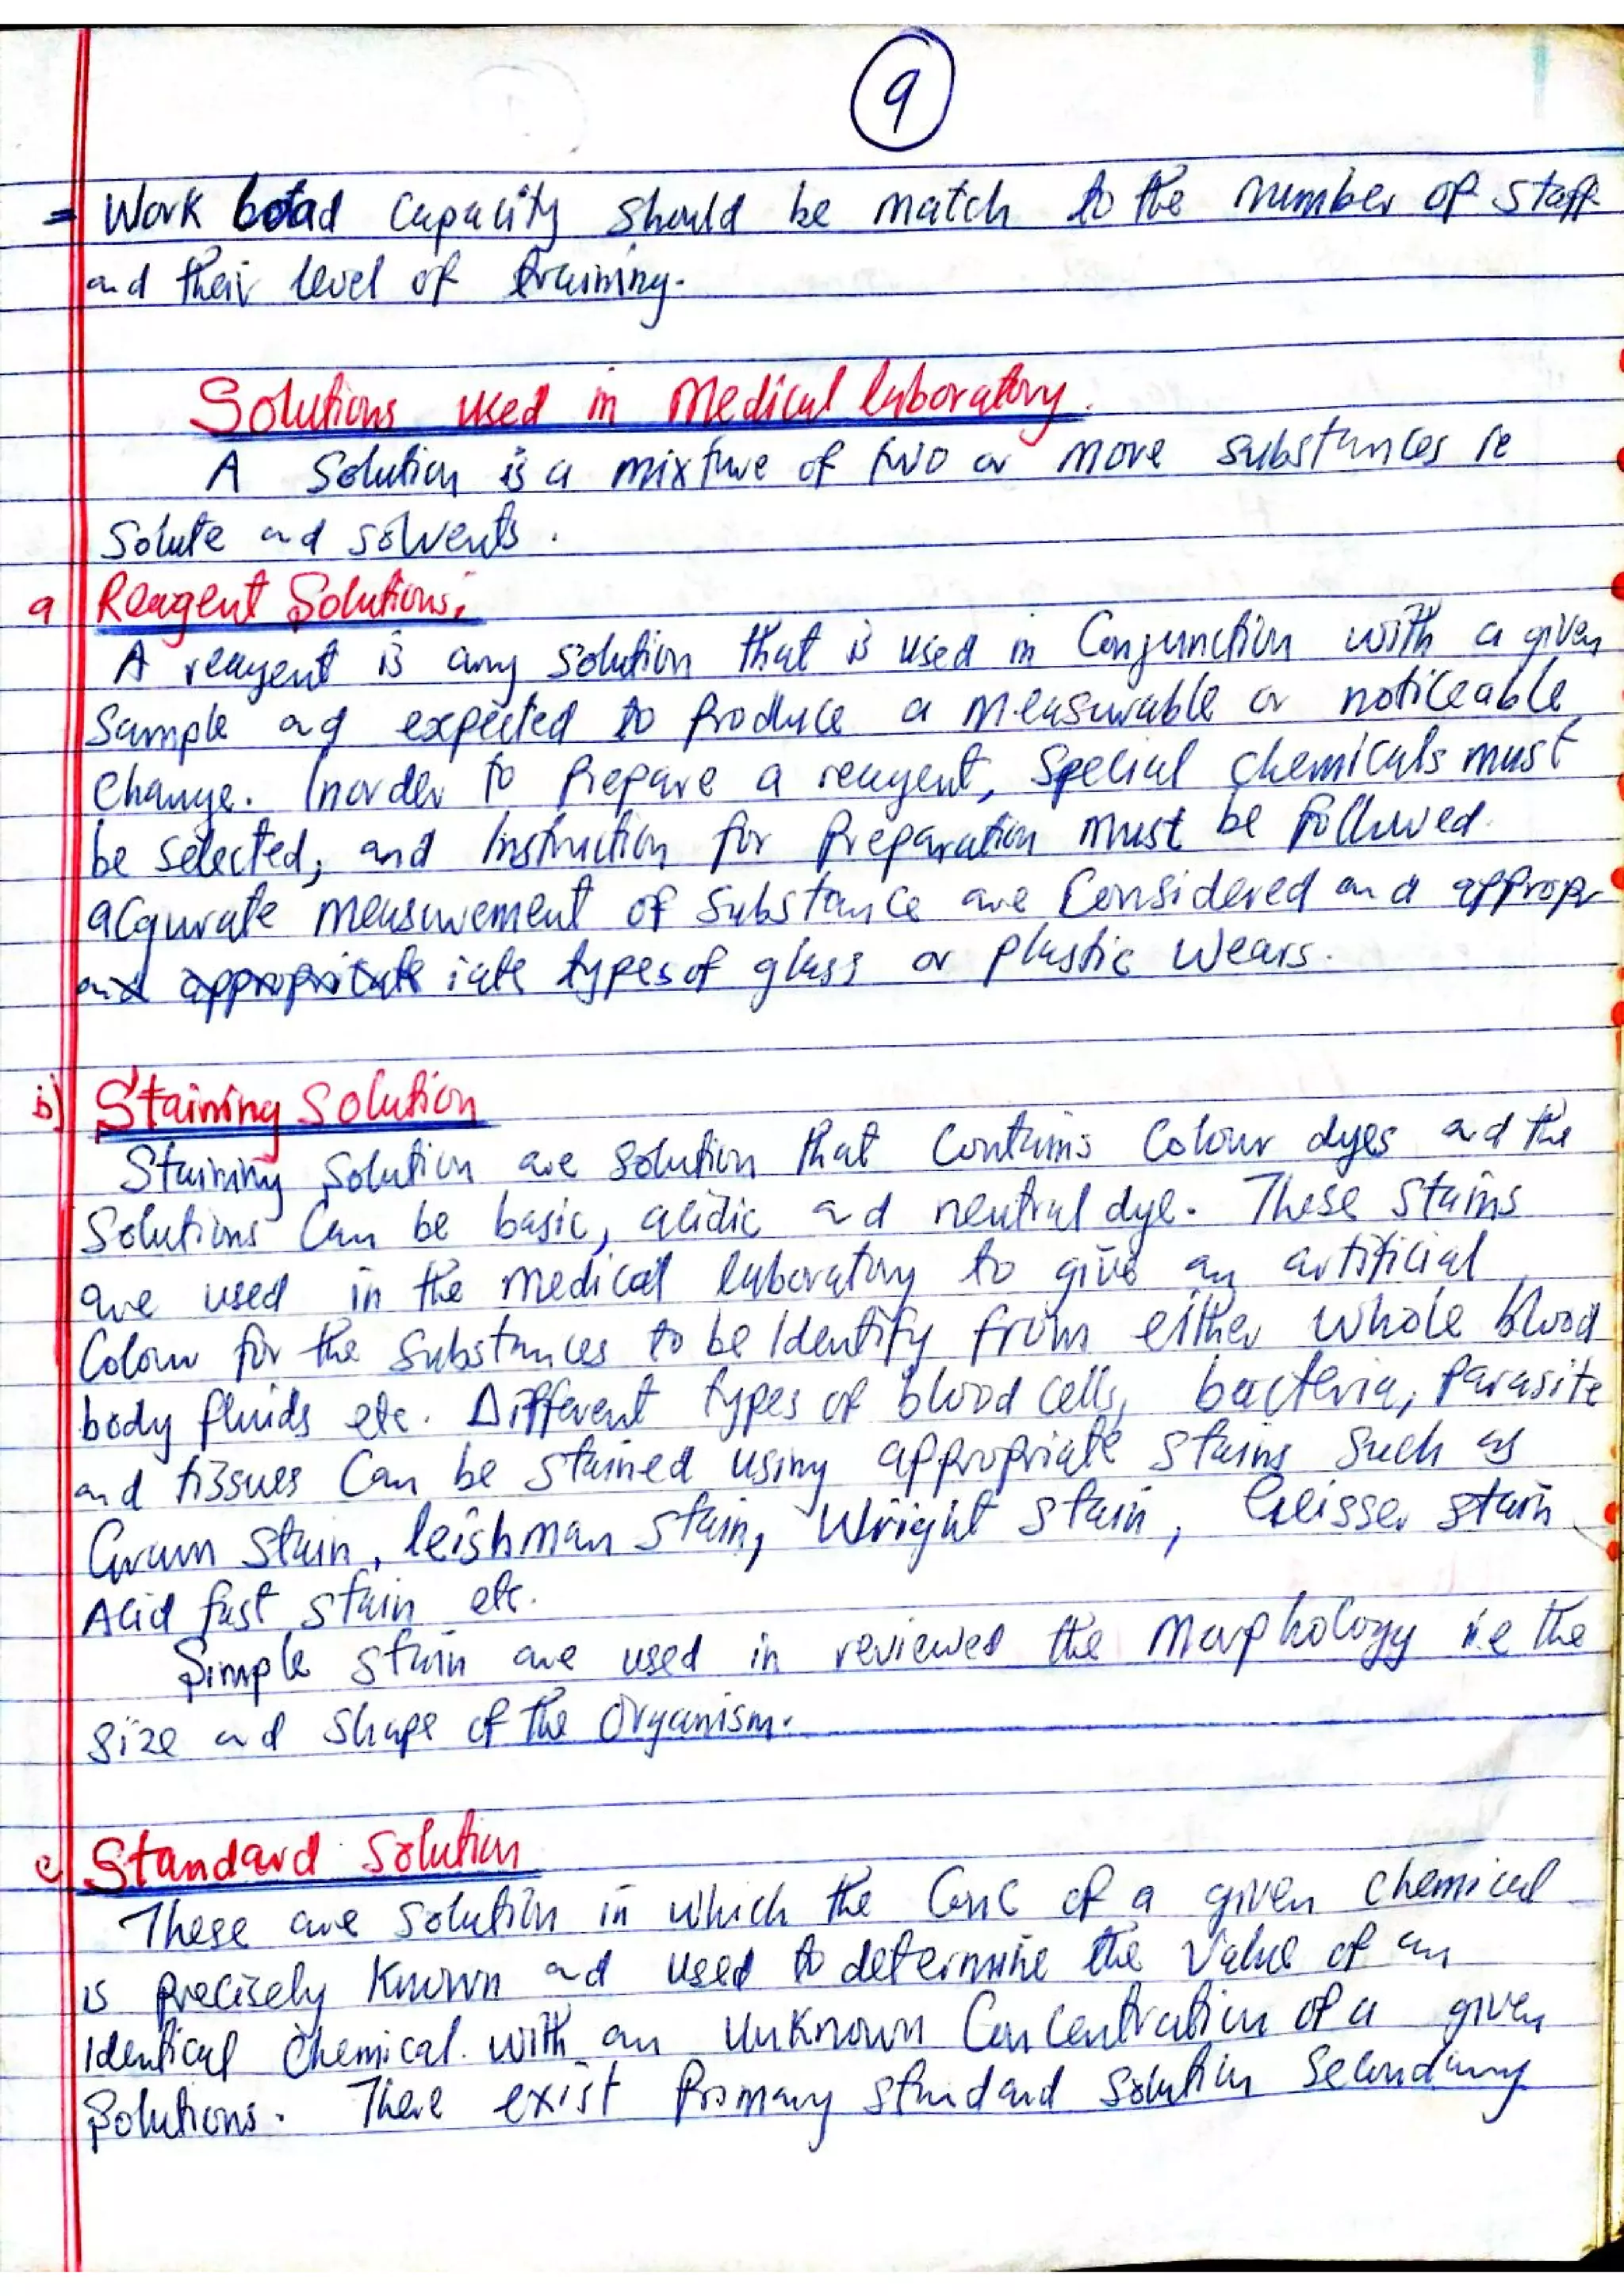 9
= Work load capacity should be match to the number of staff
and their level of training.
Solutions used in medical laboratory.
A solution is a mixture of two or more substances ie
solute and solvents.
a Reagent Solutions.
A reagent is any solution that is used in Conjunction with a given
Sample and expected to produce a measurable or noticeable
change. Inorder to prepare a reagent, special chemicals must
be selected, and Instruction for preparation must be followed.
acqurate measurement of substance are considered and appropr
iate types of glass or plastic wears.
b) Staining Solution
Staining Solution are solution that contains colour dyes and the
Solutions can be basic, acidic and neutral dye. These stains
are used in the medical laboratory to give an artificial
Colour for the substances to be Identify from either whole blood
body fluids etc. Different types of blood cells, bacteria, parasite
and tissues can be stained using appropriate stains such as
Gram stain, leishman stain, Wright stain, stain
Acid fast stain etc.
Simple stain are used in reviewed the Morphology i.e the
size and shape of the organism.
c) Standard Solution
These are solution in which the Conc of a given chemical
is precisely known and used to determine the value of an
Identical chemical with an unknown Concentration of a given
Solutions. There exist primary standard solution Secondary